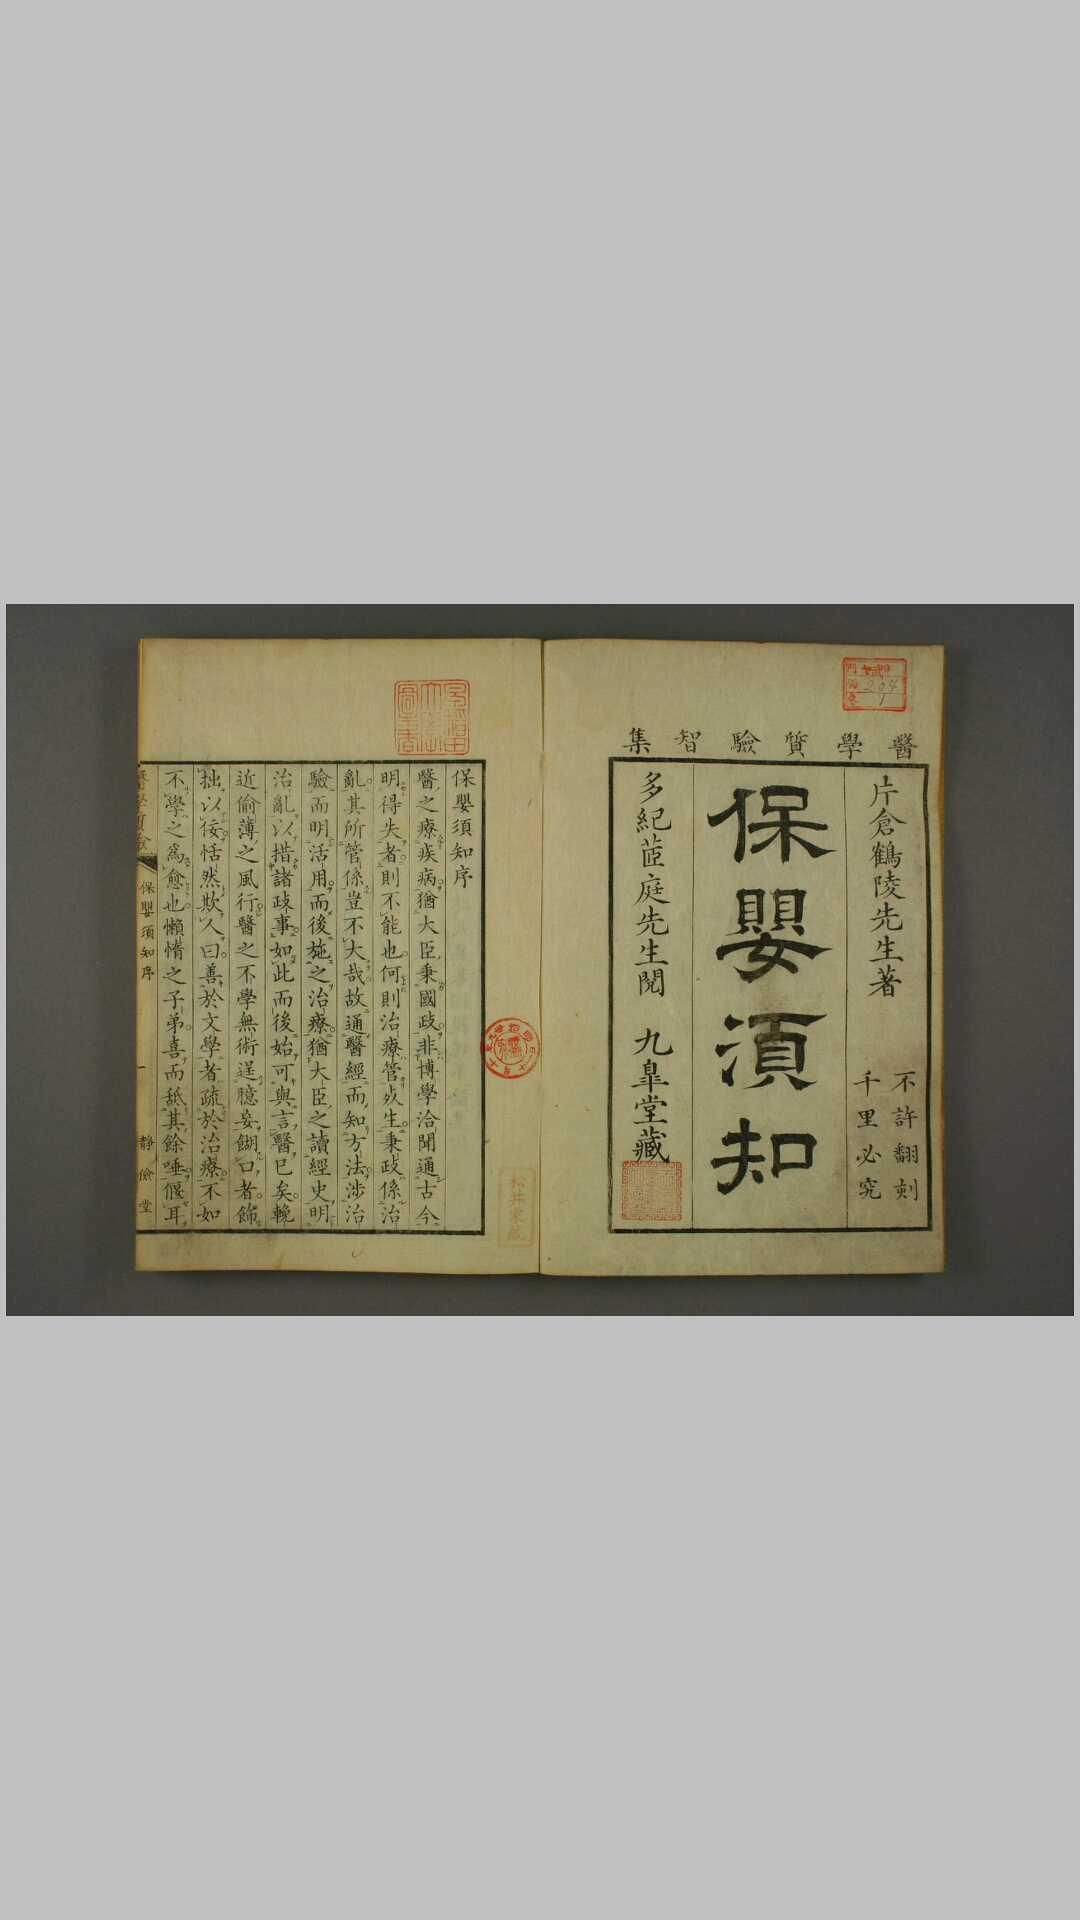 醫學質驗智集
片倉鶴陵先生著
不許翻刻
千里必究
保嬰須知
多紀茝庭先生閱 九皐堂藏
204
1
保嬰須知序
醫之療疾病猶大臣秉國政非博學洽聞通古今
明得失者則不能也何則治療管死生秉政係治
亂其所管係豈不大哉故通醫經而知方法涉治
驗而明活用而後施之治療猶大臣之讀經史明
治亂以措諸政事如此而後始可與言醫已矣輓
近偷薄之風行醫之不學無術逞臆妄餬口者飾
拙以佞恬然欺人曰善於文學者疏於治療不如
不學之爲愈也懶惰之子弟喜而舐其餘唾偃耳
醫學質驗
保嬰須知序
一
靜儉堂
松井家藏